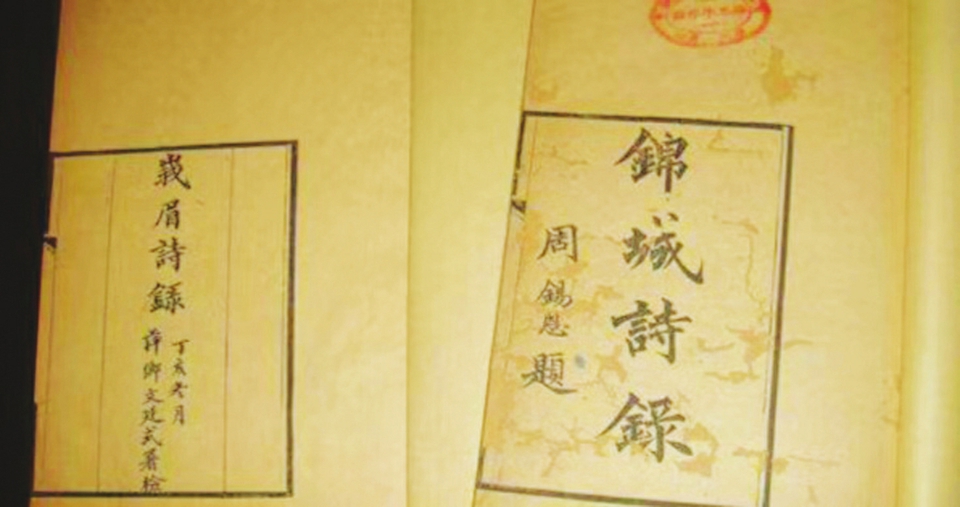 錦城詩録
周錫恩題
峩眉詩録
丁亥冬月
萍鄉文廷式署檢